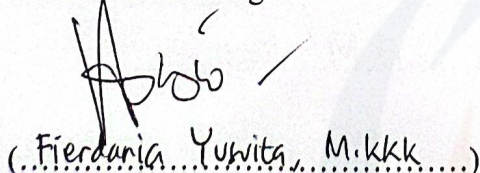 (..Fierdania Yusvita, M.KKK....)